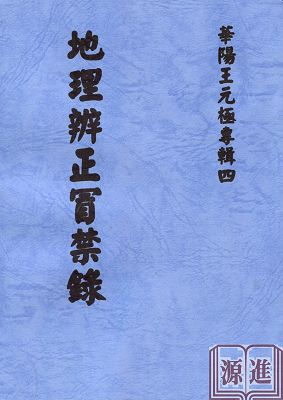 華陽王元極專輯四
地理辨正冒禁錄
進源